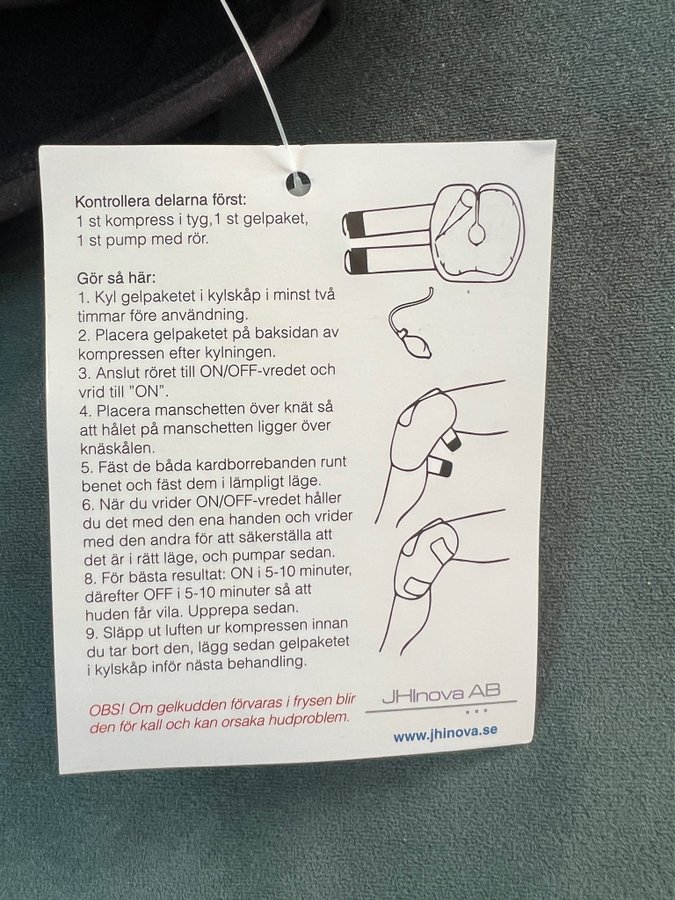 Kontrollera delarna först:
1 st kompress i tyg,1 st gelpaket,
1 st pump med rör.
Gör så här:
1. Kyl gelpaketet i kylskåp i minst två
timmar före användning.
2. Placera gelpaketet på baksidan av
kompressen efter kylningen.
3. Anslut röret till ON/OFF-vredet och
vrid till "ON".
4. Placera manschetten över knät så
att hålet på manschetten ligger över
knäskålen.
5. Fäst de båda kardborrebanden runt
benet och fäst dem i lämpligt läge.
6. När du vrider ON/OFF-vredet håller
du det med den ena handen och vrider
med den andra för att säkerställa att
det är i rätt läge, och pumpar sedan.
8. För bästa resultat: ON i 5-10 minuter,
därefter OFF i 5-10 minuter så att
huden får vila. Upprepa sedan.
9. Släpp ut luften ur kompressen innan
du tar bort den, lägg sedan gelpaketet
i kylskåp inför nästa behandling.
OBS! Om gelkudden förvaras i frysen blir
den för kall och kan orsaka hudproblem.
JHInova AB
www.jhinova.se